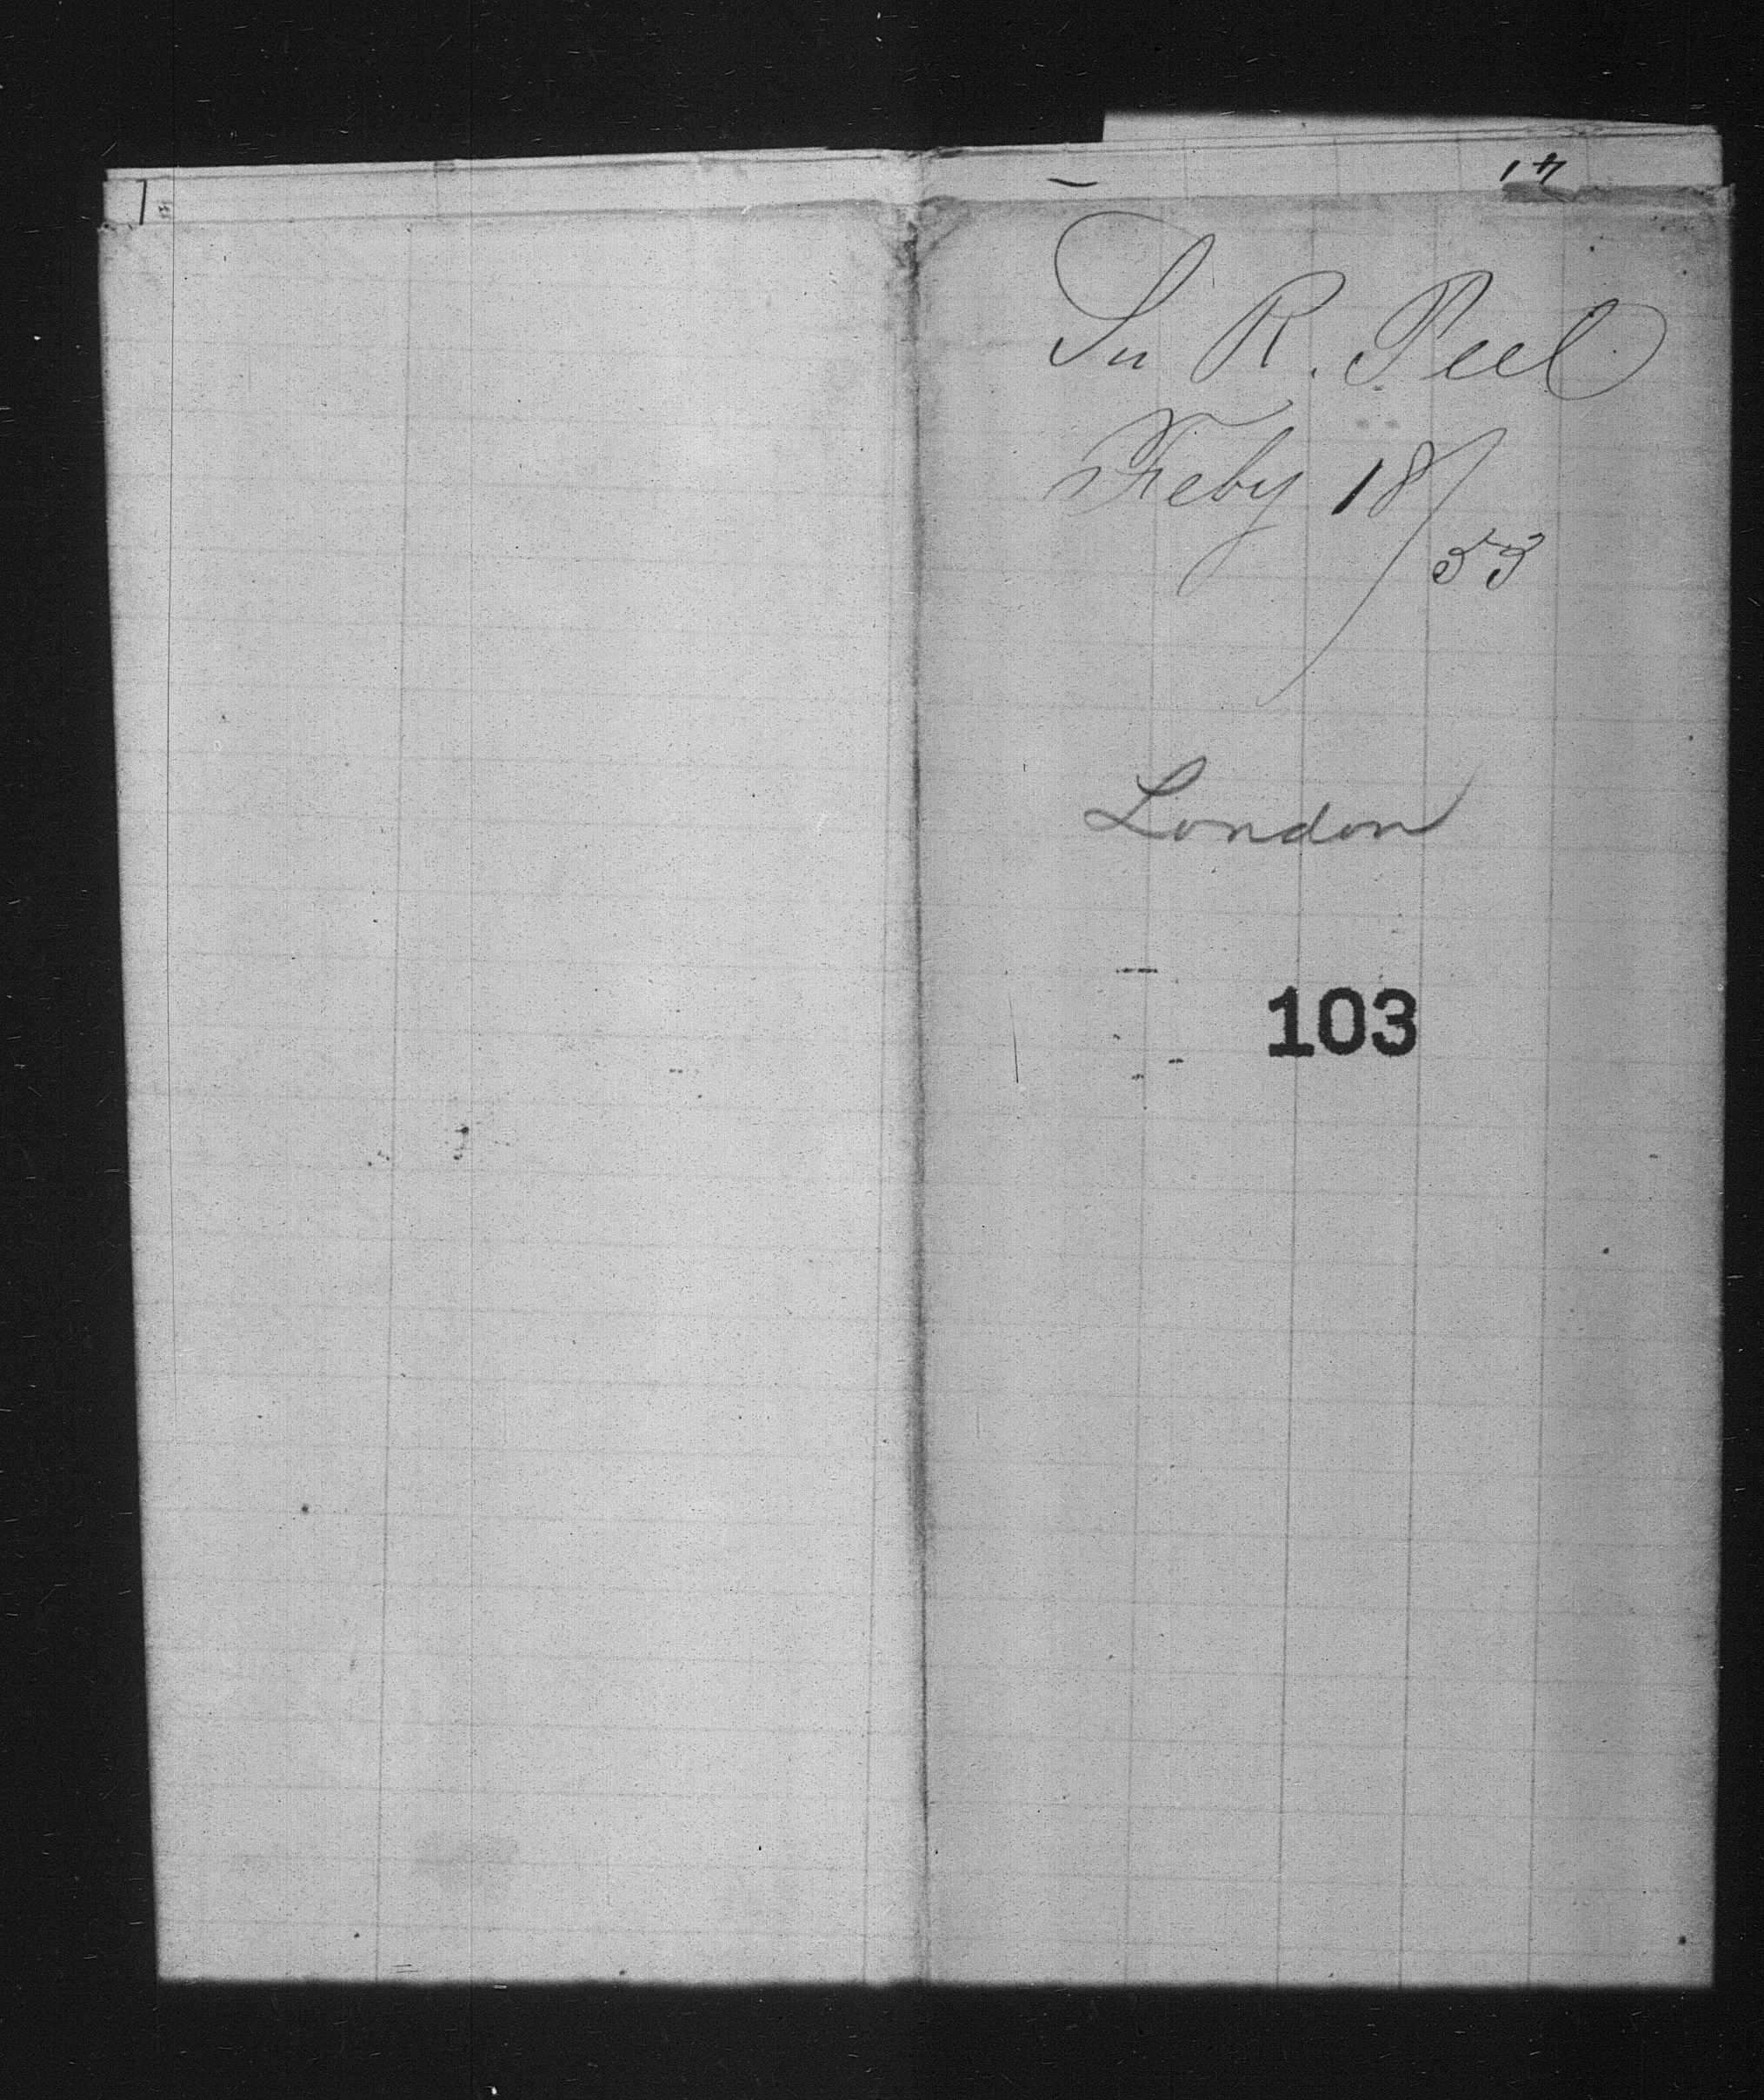 Sir R. Peel
Feby 18/
53
London
103